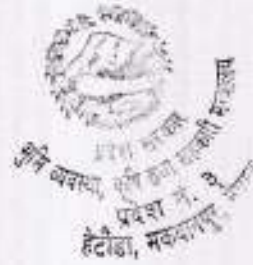 प्रदेश सरकार
भूमि व्यवस्था, कृषि तथा सहकारी मन्त्रालय
प्रदेश नं. ३
हेटौंडा, मकवानपुर,